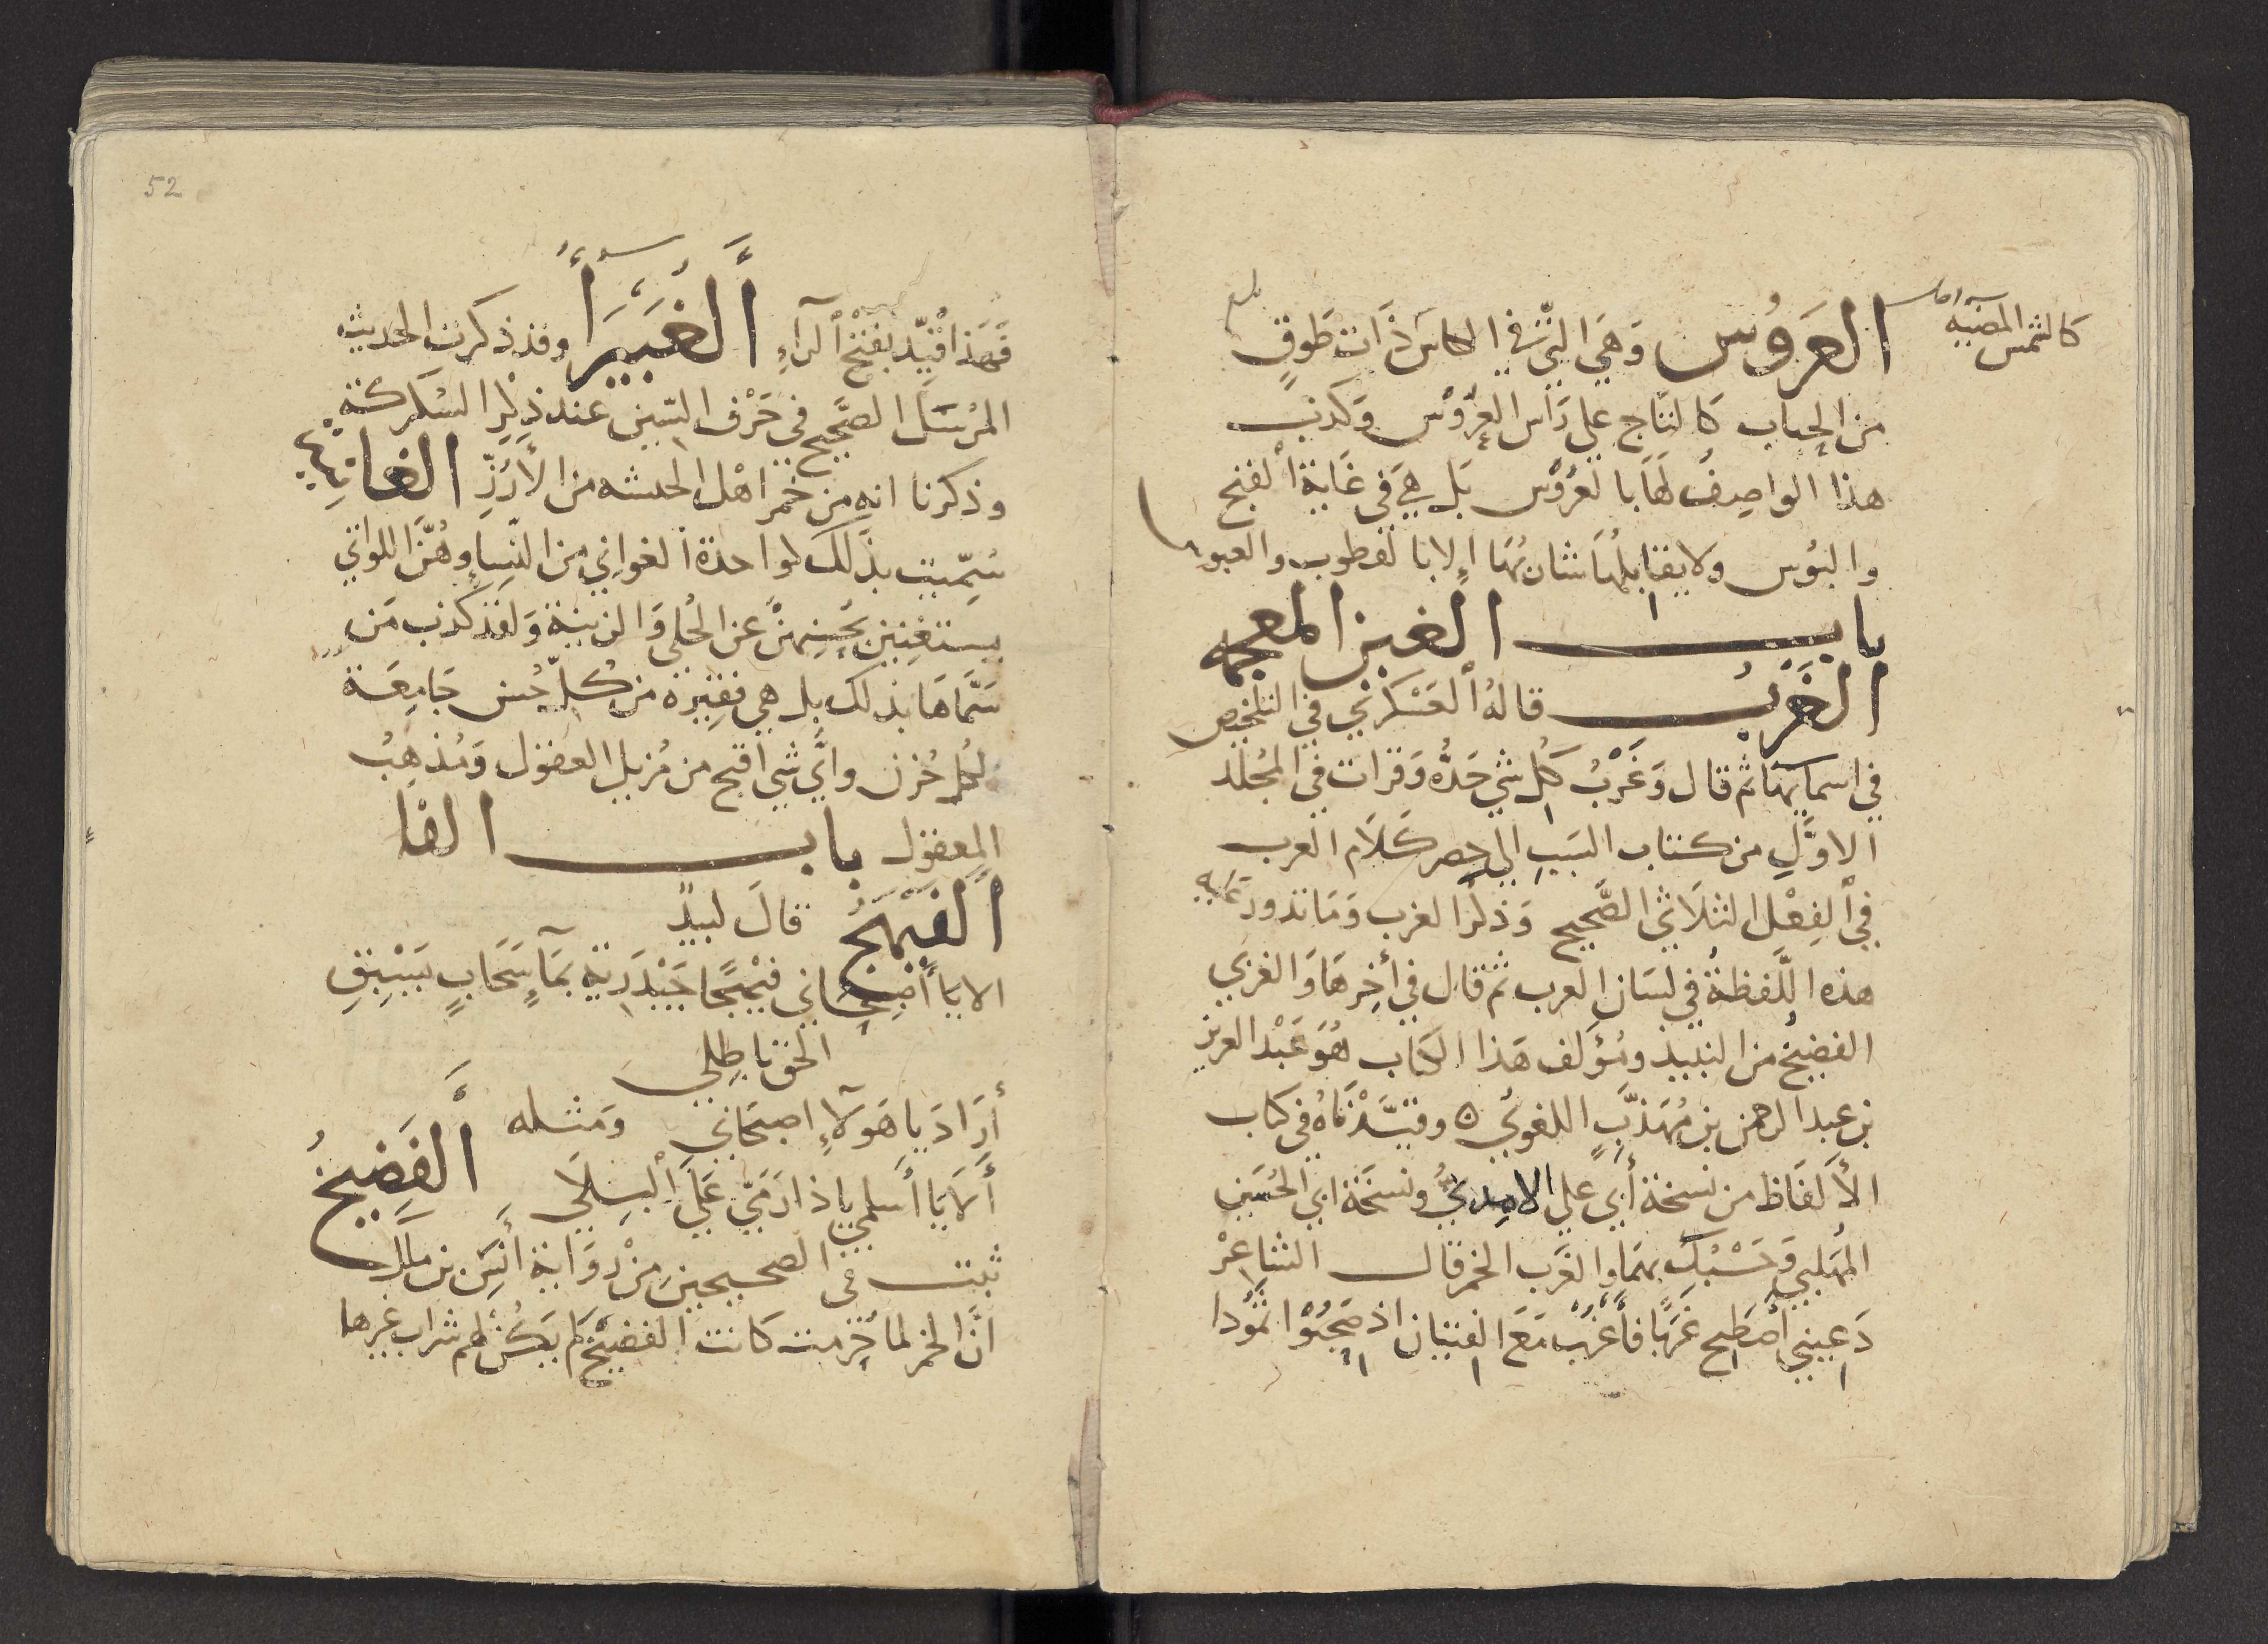 كالشمس المضيه
العَرُوُس وَهَي التي في الكاس ذَات طَوقٍ
من الحِباب كالتاج علي رَاس العروس وكذب
هذا الواصِفُ لهَا بالعَرُوْس بَل هِيَ في غَاية القبح
والبوُس ولا يقابلُهَا شَانهَا إلا بالقطوب والعبوس
باب الغين المعجمه
الغَرْبُ قالهُ العَسْكَري في التلخيص
في اسمايهَا ثم قال وَغَرْبُ كل شي حَدُّه وَقرات في المجُلد
الاوَّلِ من كتاب السَببِ الي حصر كَلَام العرب
في الفِعْل الثلَاثي الصَّحيح وَذكر الغرب وَمَا تدور عليه
هذه اللَّفظةُ في لسَان العرب ثم قال في أخِرهَا وَالغربي
الفضيخُ من النبيذ ومُؤلف هَذا الكتاب هُوَ عَبْد العزيز
بن عبد الرحمن بن مُهَذَّبٍ اللغويُ ٥ وقيَّدْنَاهُ في كتاب
الألفَاظ من نسخة أبي علي الامِديُّ ونسخَة ابي الحُسَين
المُهَلبي وَحَسْبُك بهمَا والغَرب الخمر قال الشاعِرْ
دَعيني أصْطَبح غَرَبًا فأغرِبْ مَعَ الفتيان اذ صَحِبُوْا ثمُودا
52
فَهَذا قيِّد بفتح الرَّاءِ الغُبَيرَا وقد ذكرت الحديث
المُرسَل الصَّحيح في حَرْف السّين عند ذِكر السُكركة
وذكرنا انه من خمر اهْل الحبشه من الأرُزِّ الغانِية
سُمّيت بذلك لواحدة الغواني من النِّساءِ وهُنَّ اللواتي
يستغنين بحُسِنِهنَّ عن الحُلي وَالزينة وَلقد كذب مَن
سَمَّاهَا بذلك بل هي فقِيرة من كُلّ حُسن جَامِعَة
لكل حُزن وأيُّ شي اقبح من مُزيل العقول وَمُذهِبُ
المعقول باب الفا
الفَيهَجُ قالَ لبيدٌ
الا يَا أصْبِحَاني فيْهَجًا جَيْدَرِية بمَآءِ سَحَابٍ يَسْبِقِ
الحق باطِلي
أرَادَ يا هَوٓلاءِ اصبحَاني وَمثله
أَلَايَا أَسلمي ياذا رَمَيّ عَلَى الْبِلَي الفَضِيخُ
ثبت في الصحيحين مِنْ روَاية أنَس بن ملك
انَّ الخمر لما حُرّمت كَانت الفضيخ لم يَكُنْ لهم شراب غيرها